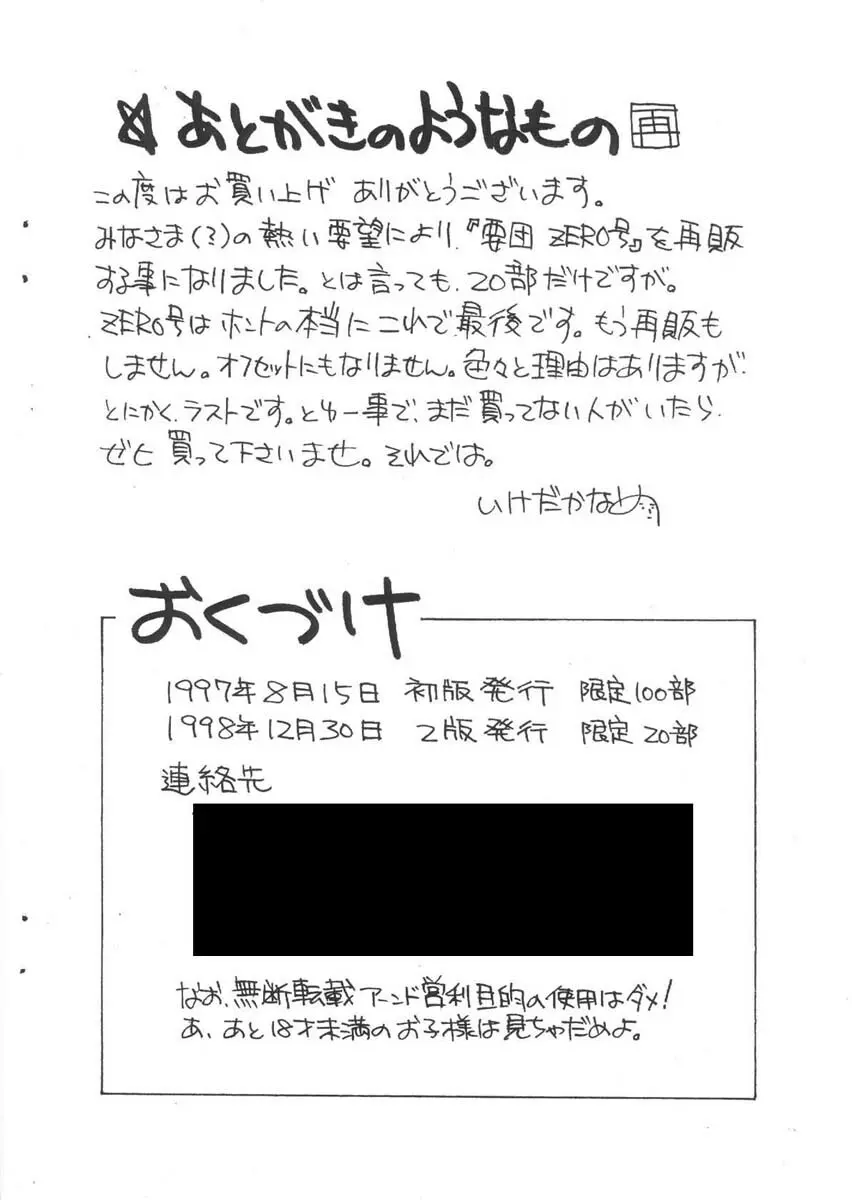 ☆あとがきのようなもの 再
この度はお買い上げ ありがとうございます。
みなさま(?)の熱い要望により、『要団 ZERO号』を再販
する事になりました。とは言っても、20部だけですが。
ZERO号はホントの本当にこれで最後です。もう再販も
しません。オフセットにもなりません。色々と理由はありますが、
とにかく、ラストです。とゆー事で、まだ買ってない人がいたら、
ぜヒ買って下さいませ。それでは。
いけだかなめ
おくづけ
1997年8月15日 初版発行 限定100部
1998年12月30日 2版発行 限定20部
連絡先
なお、無断転載アーンド営利目的の使用はダメ!
あ、あと18才未満のお子様は見ちゃだめよ。